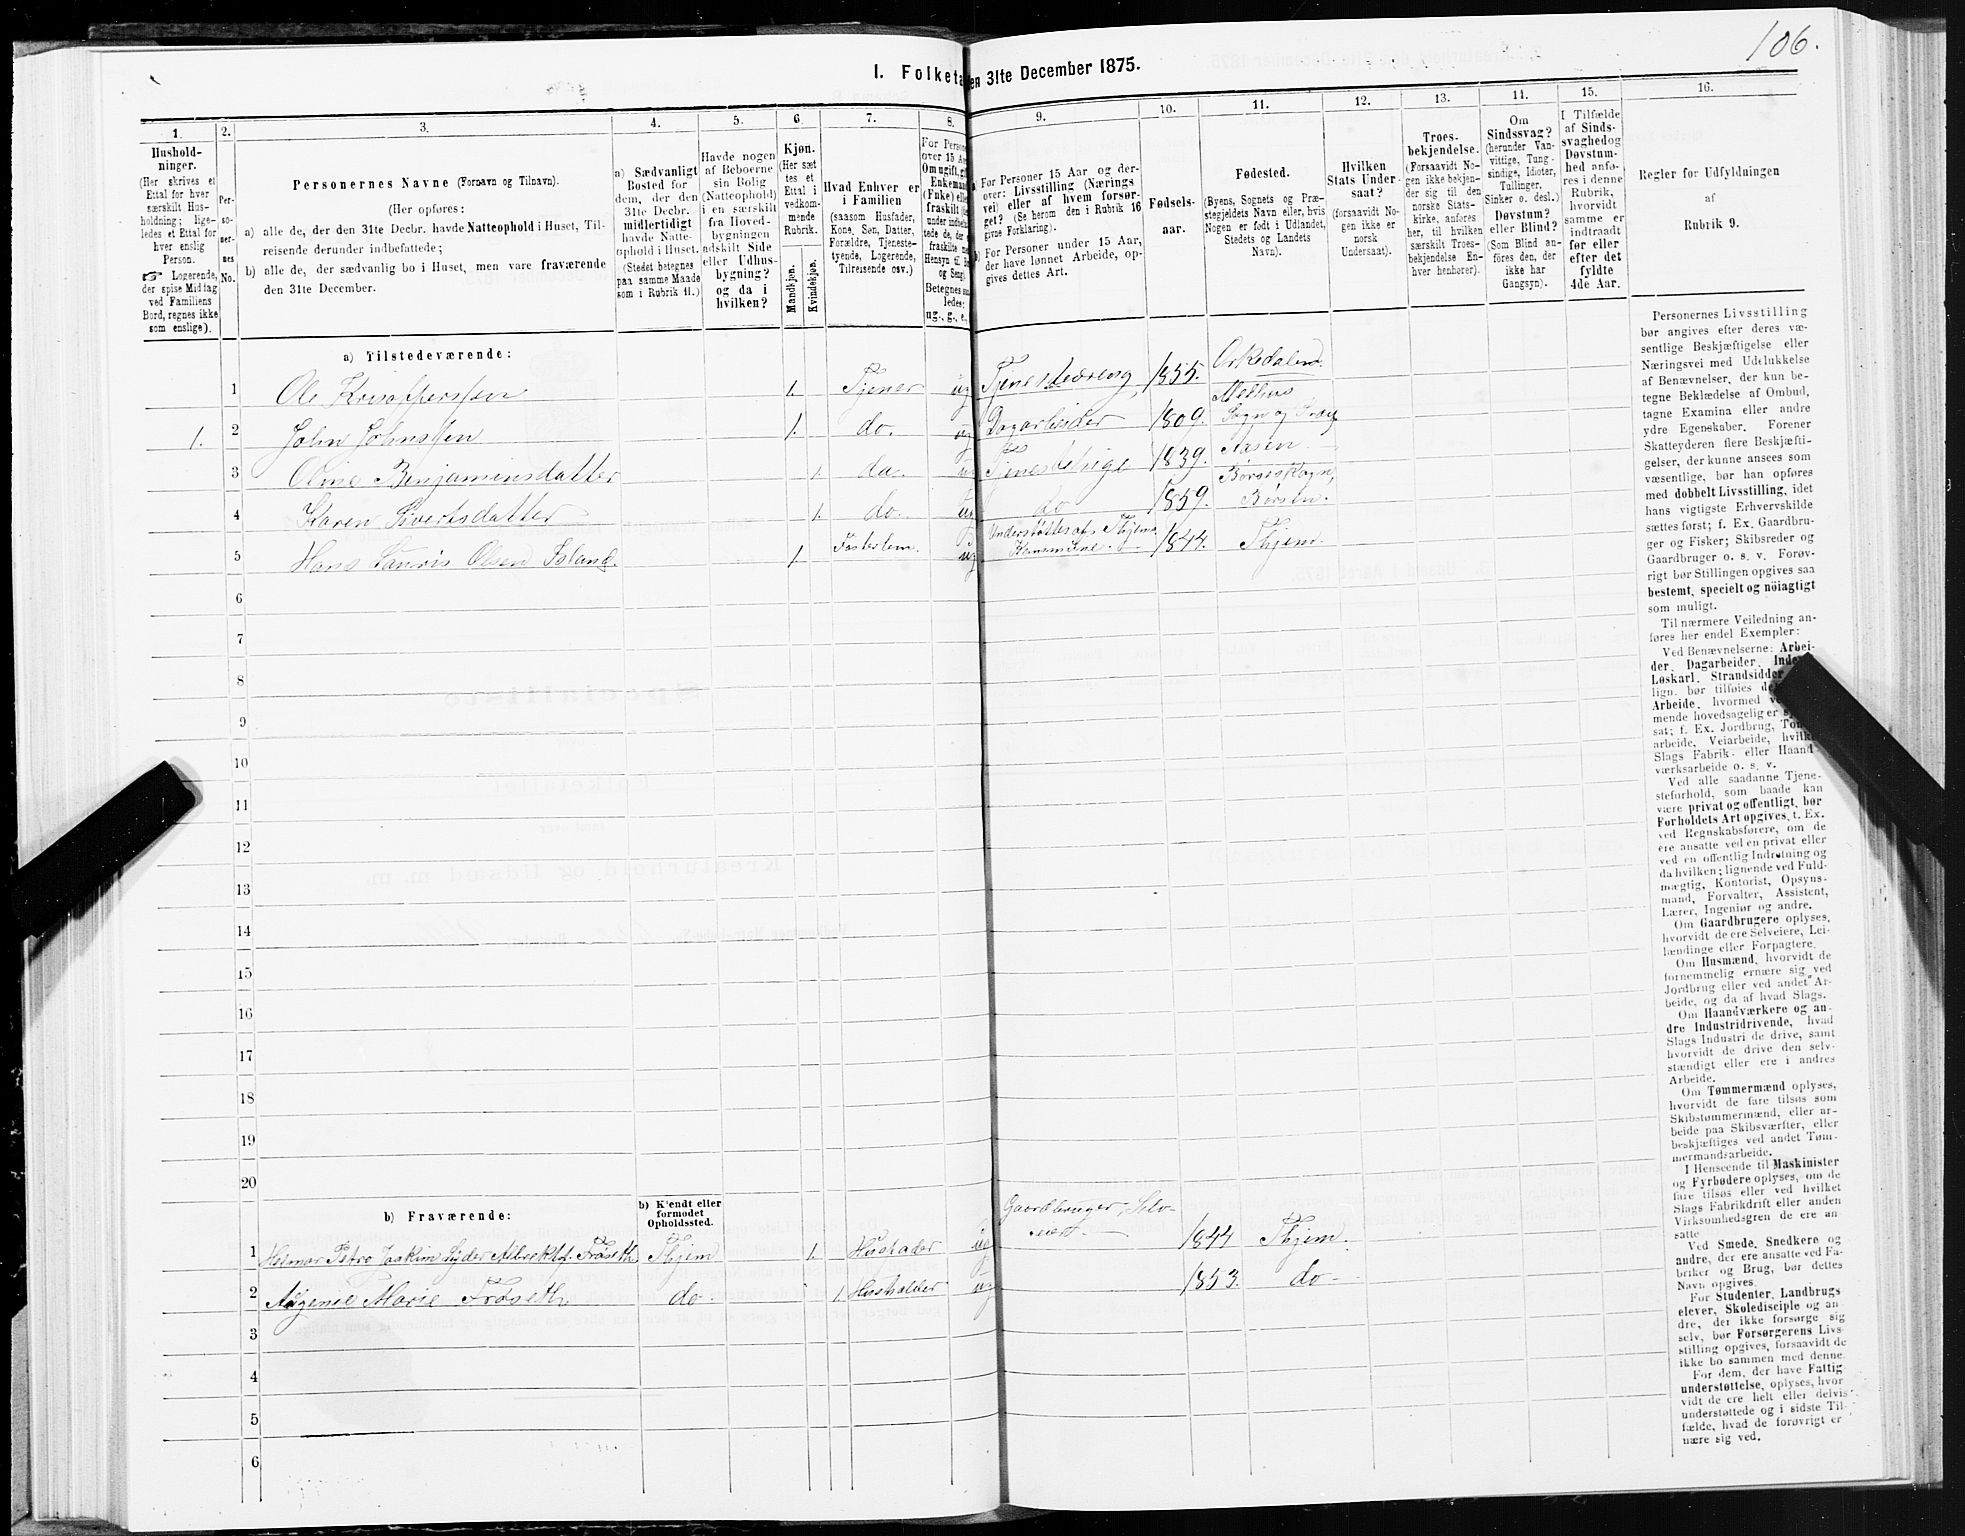 106.
I. Folketa
en 31te December 1875.
1. 2. 3. 4. 5. 6. 7. 8. 9. 10. 11. 12. 13. 14. 15. 16.
Hushold-
ninger.
(Her skrives et
Ettal for hver
særskilt Hus-
holdning; lige-
ledes et Ettal for
hver enslig
Person.
☞ Logerende,
der spise Middag
ved Familiens
Bord, regnes ikke
som enslige).
Per-
so-
ner-
nes
No.
Personernes Navne (Fornavn og Tilnavn).
(Her opføres:
a) alle de, der den 31te Decbr. havde Natteophold i Huset, Til-
reisende derunder indbefattede;
b) alle de, der sædvanlig bo i Huset, men vare fraværende
den 31te December.
a) Sædvanligt
Bosted for
dem, der den
31te Decbr.
midlertidigt
havde Natte-
ophold i Huset.
(Stedet betegnes
paa samme Maade
som i Rubrik 11.)
Havde nogen
af Beboerne
sin Bolig
(Natteophold)
i en særskilt
fra Hoved-
bygningen
adskilt Side
eller Udhus-
bygning?
og da i
hvilken?
Kjøn.
(Her sæt
tes et
Ettal i
vedkom-
mende
Rubrik.
Mandkjøn.
Kvindekjøn.
Hvad Enhver er
i Familien
(saasom Husfader,
Kone, Søn, Datter,
Forældre, Tjeneste-
tyende, Logerende,
Tilreisende osv.)
For Person
over 15 Aar
Om ugift, gi
Enkemand
(Enke) elle
fraskilt
ug., g., e.,
For Personer 15 Aar og der-
over: Livsstilling (Nærings
vei) eller af hvem forsør-
get? (Se herom den i Rubrik 16
givne Forklaring).
For Personer under 15 Aar,
der have lønnet Arbeide, op-
gives dettes Art.
Fødsels-
aar.
Fødested.
(Byens, Sognets og Præ-
stegjeldets Navn eller, hvis
Nogen er født i Udlandet,
Stedets og Landets
Navn).
Hvilken
Stats Under-
saat?
(forsaavidt No-
gen ikke er
norsk
Undersaat).
Troes-
bekjendelse.
(Forsaavidt No-
gen ikke bekjen-
der sig til den
norske Stats-
kirke, anføres
her, til hvilken
særskilt Troes-
bekjendelse En-
hver henhører).
Om
Sindssvag?
(herunder Van-
vittige, Tung-
sindige, Idioter,
Tullinger,
Sinker o. desl.)
Døvstum?
eller Blind?
(Som Blind an-
føres den, der
ikke har
Gangsyn).
I Tilfælde
af Sinds-
svaghed og
Døvstum-
hed anfø-
res i denne
Rubrik,
hvorvidt
samme er
indtraadt
før eller
efter det
fyldte
4de Aar.
Regler for Udfyldningen
af
Rubrik 9.
a) Tilstedeværende:
1 Ole Kristoffersen 1. Tjener ug Tjenestedreng 1855. Orkedalen.
1. 2 John Johnsen 1. do. ug Dagarbeider 1809. Melhus Sogn og Præg
3 Oline Benjaminsdatter 1. do. ug Tjenestepige 1839. Aasen
4 Karen Sivertsdatter 1. do. ug do 1859. Børseskogn, Børsen.
5 Hans Lauris Olsen Island. 1. Fosterlem. ug Understøttes af Thjems Kommune. 1844. Thjem.
6
7
8
9
10
11
12
13
14
15
16
17
18
19
20
b) Fraværende:
b) Kjendt eller
formodet
Opholdssted.
1 Helmer Petro Joakim Lyder Albrektsen Frøseth Thjem 1. Husfader ug Gaardbruger, Selveier. 1844 Thjem.
2 Augenie Marie Frøseth do. 1 Husholder ug 1853. do
3
4
5
6
Personernes Livsstilling
bør angives efter deres væ-
sentlige Beskjæftigelse eller
Næringsvei med Udelukkelse
af Benævnelser, der kun be-
tegne Beklædelse af Ombud,
tagne Examina eller andre
ydre Egenskaber. Forener
Skatteyderen flere Beskjæfti-
gelser, der kunne ansees som
væsentlige, bør han opføres
med dobbelt Livsstilling, idet
hans vigtigste Erhvervskilde
sættes først; f. Ex. Gaardbru-
ger og Fisker; Skibsreder og
Gaardbruger o. s. v. Forøv-
rigt bør Stillingen opgives saa
bestemt, specielt og nöiagtigt
som muligt.
Til nærmere Veiledning an-
føres her endel Exempler:
Ved Benævnelserne: Arbei-
der, Dagarbeider, Inder
Løskarl, Strandsidder
lign. bør tilføies de
Arbeide, hvormed v
mende hovedsagelig er
sat; f. Ex. Jordbrug, Tom
arbeide, Veiarbeide, hvilke
Slags Fabrik- eller Haand-
værksarbeide o. s. v.
Ved alle saadanne Tjene-
steforhold, som baade kan
være privat og offentligt, bør
Forholdets Art opgives, t. Ex.
ved Regnskabsførere, om de
ere ansatte ved en privat eller
ved en offentlig Indretning og
da hvilken; lignende ved Fuld-
mægtig, Kontorist, Opsyns-
mand, Forvalter, Assistent,
Lærer, Ingeniør og andre.
Om Gaardbrugere oplyses,
hvorvidt de ere Selveiere, Lei-
lændinge eller Forpagtere.
Om Husmænd, hvorvidt de
fornemmelig ernære sig ved
Jordbrug eller ved andet Ar-
beide, og da af hvad Slags.
Om Haandværkere og an-
dre Industridrivende, hvad
Slags Industri de drive, samt
hvorvidt de drive den selv-
stændigt eller ere i andres
Arbeide.
Om Tømmermænd oplyses,
hvorvidt de fare tilsøs som
Skibstømmermænd, eller ar-
beide paa Skibsværfter, eller
beskjæftiges ved andet Tøm-
mermandsarbeide.
I Henseende til Maskinister
og Fyrbødere oplyses, om de
fare tilsøs eller ved hvilket
Slags Fabrikdrift eller anden
Virksomhedsgren de ere an-
satte.
Ved Smede, Snedkere og
andre, der ere ansatte ved Fa-
briker og Brug, bør dettes
Navn opgives.
For Studenter, Landbrugs
elever, Skoledisciple og an-
dre, der ikke forsørge sig
selv, bør Forsørgerens Livs-
stilling opgives, forsaavidt de
ikke bo sammen med denne.
For dem, der have Fattig
understøttelse, oplyses, hvor
vidt de ere helt eller delvis
understøttede og i sidste Til-
fælde, hvad de forøvrigt er
nære sig ved.